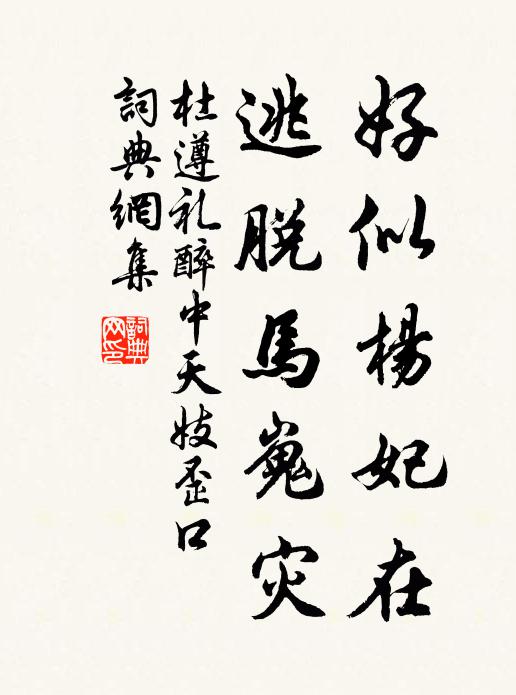 好似楊妃在
逃脱馬嵬灾
杜遵礼醉中天妓歪口
詞典網集
詞典网印